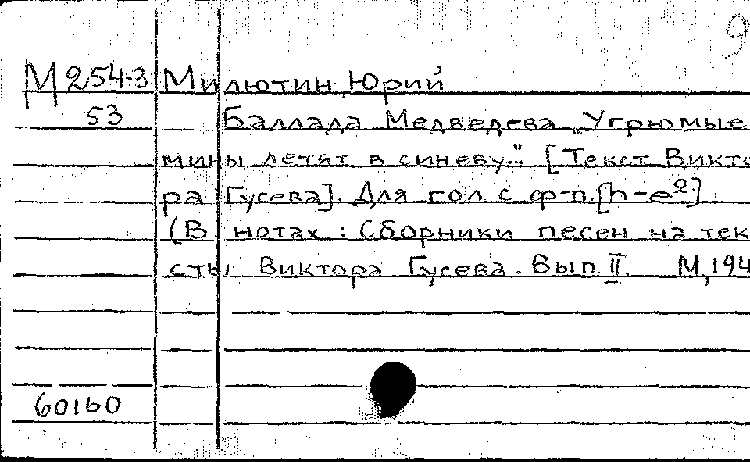 9
М254-3 Милютин, Юрий
53 Баллада Медведева „Угрюмые
мины летят в синеву." [Текст Викто
ра Гусева]. Для гол. с ф-п. [h-e²].
(В нотах: Сборники песен на тек
сты Виктора Гусева. Вып. II М, 194
60160